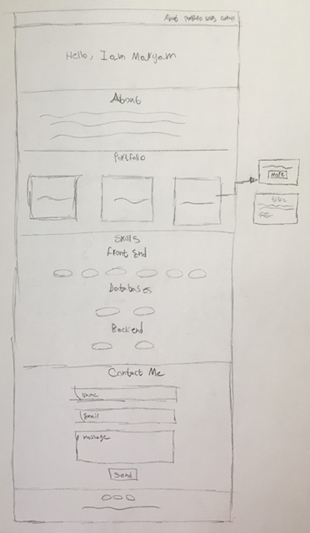 About Portfolio Skills Contact
Hello, I am Maryam
About
Portfolio
More
Title
Skills
Front End
Databases
Backend
Contact Me
Name
Email
message
Send